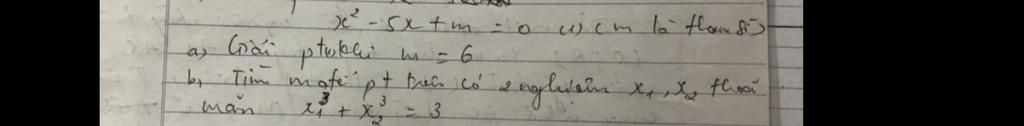 x² - 5x + m = 0 (1) (m là tham số)
a) Giải pt khi m = 6
b, Tìm m để pt trên có 2 nghiệm x₁, x₂ thoả
mãn x₁³ + x₂³ = 3